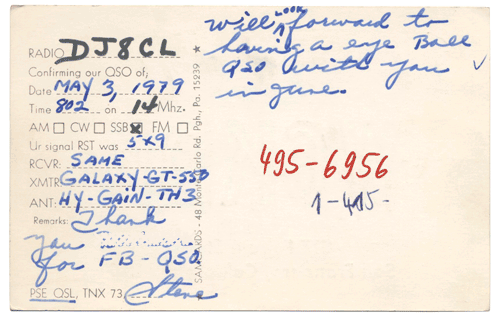 RADIO DJ8CL
Confirming our QSO of;
Date MAY 3, 1979
Time 802 on 14 Mhz.
AM CW SSB X FM
Ur signal RST was 5x9
RCVR: SAME
XMTR: GALAXY-GT-550
ANT: HY-GAIN-TH3
Remarks: Thank
you
for FB-QSO
PSE QSL, TNX 73, Steve
Rd. Pgh., Pa. 15239 ★
Will LOOK forward to
having a eye Ball
QSO with you
in June.
495-6956
1-415-